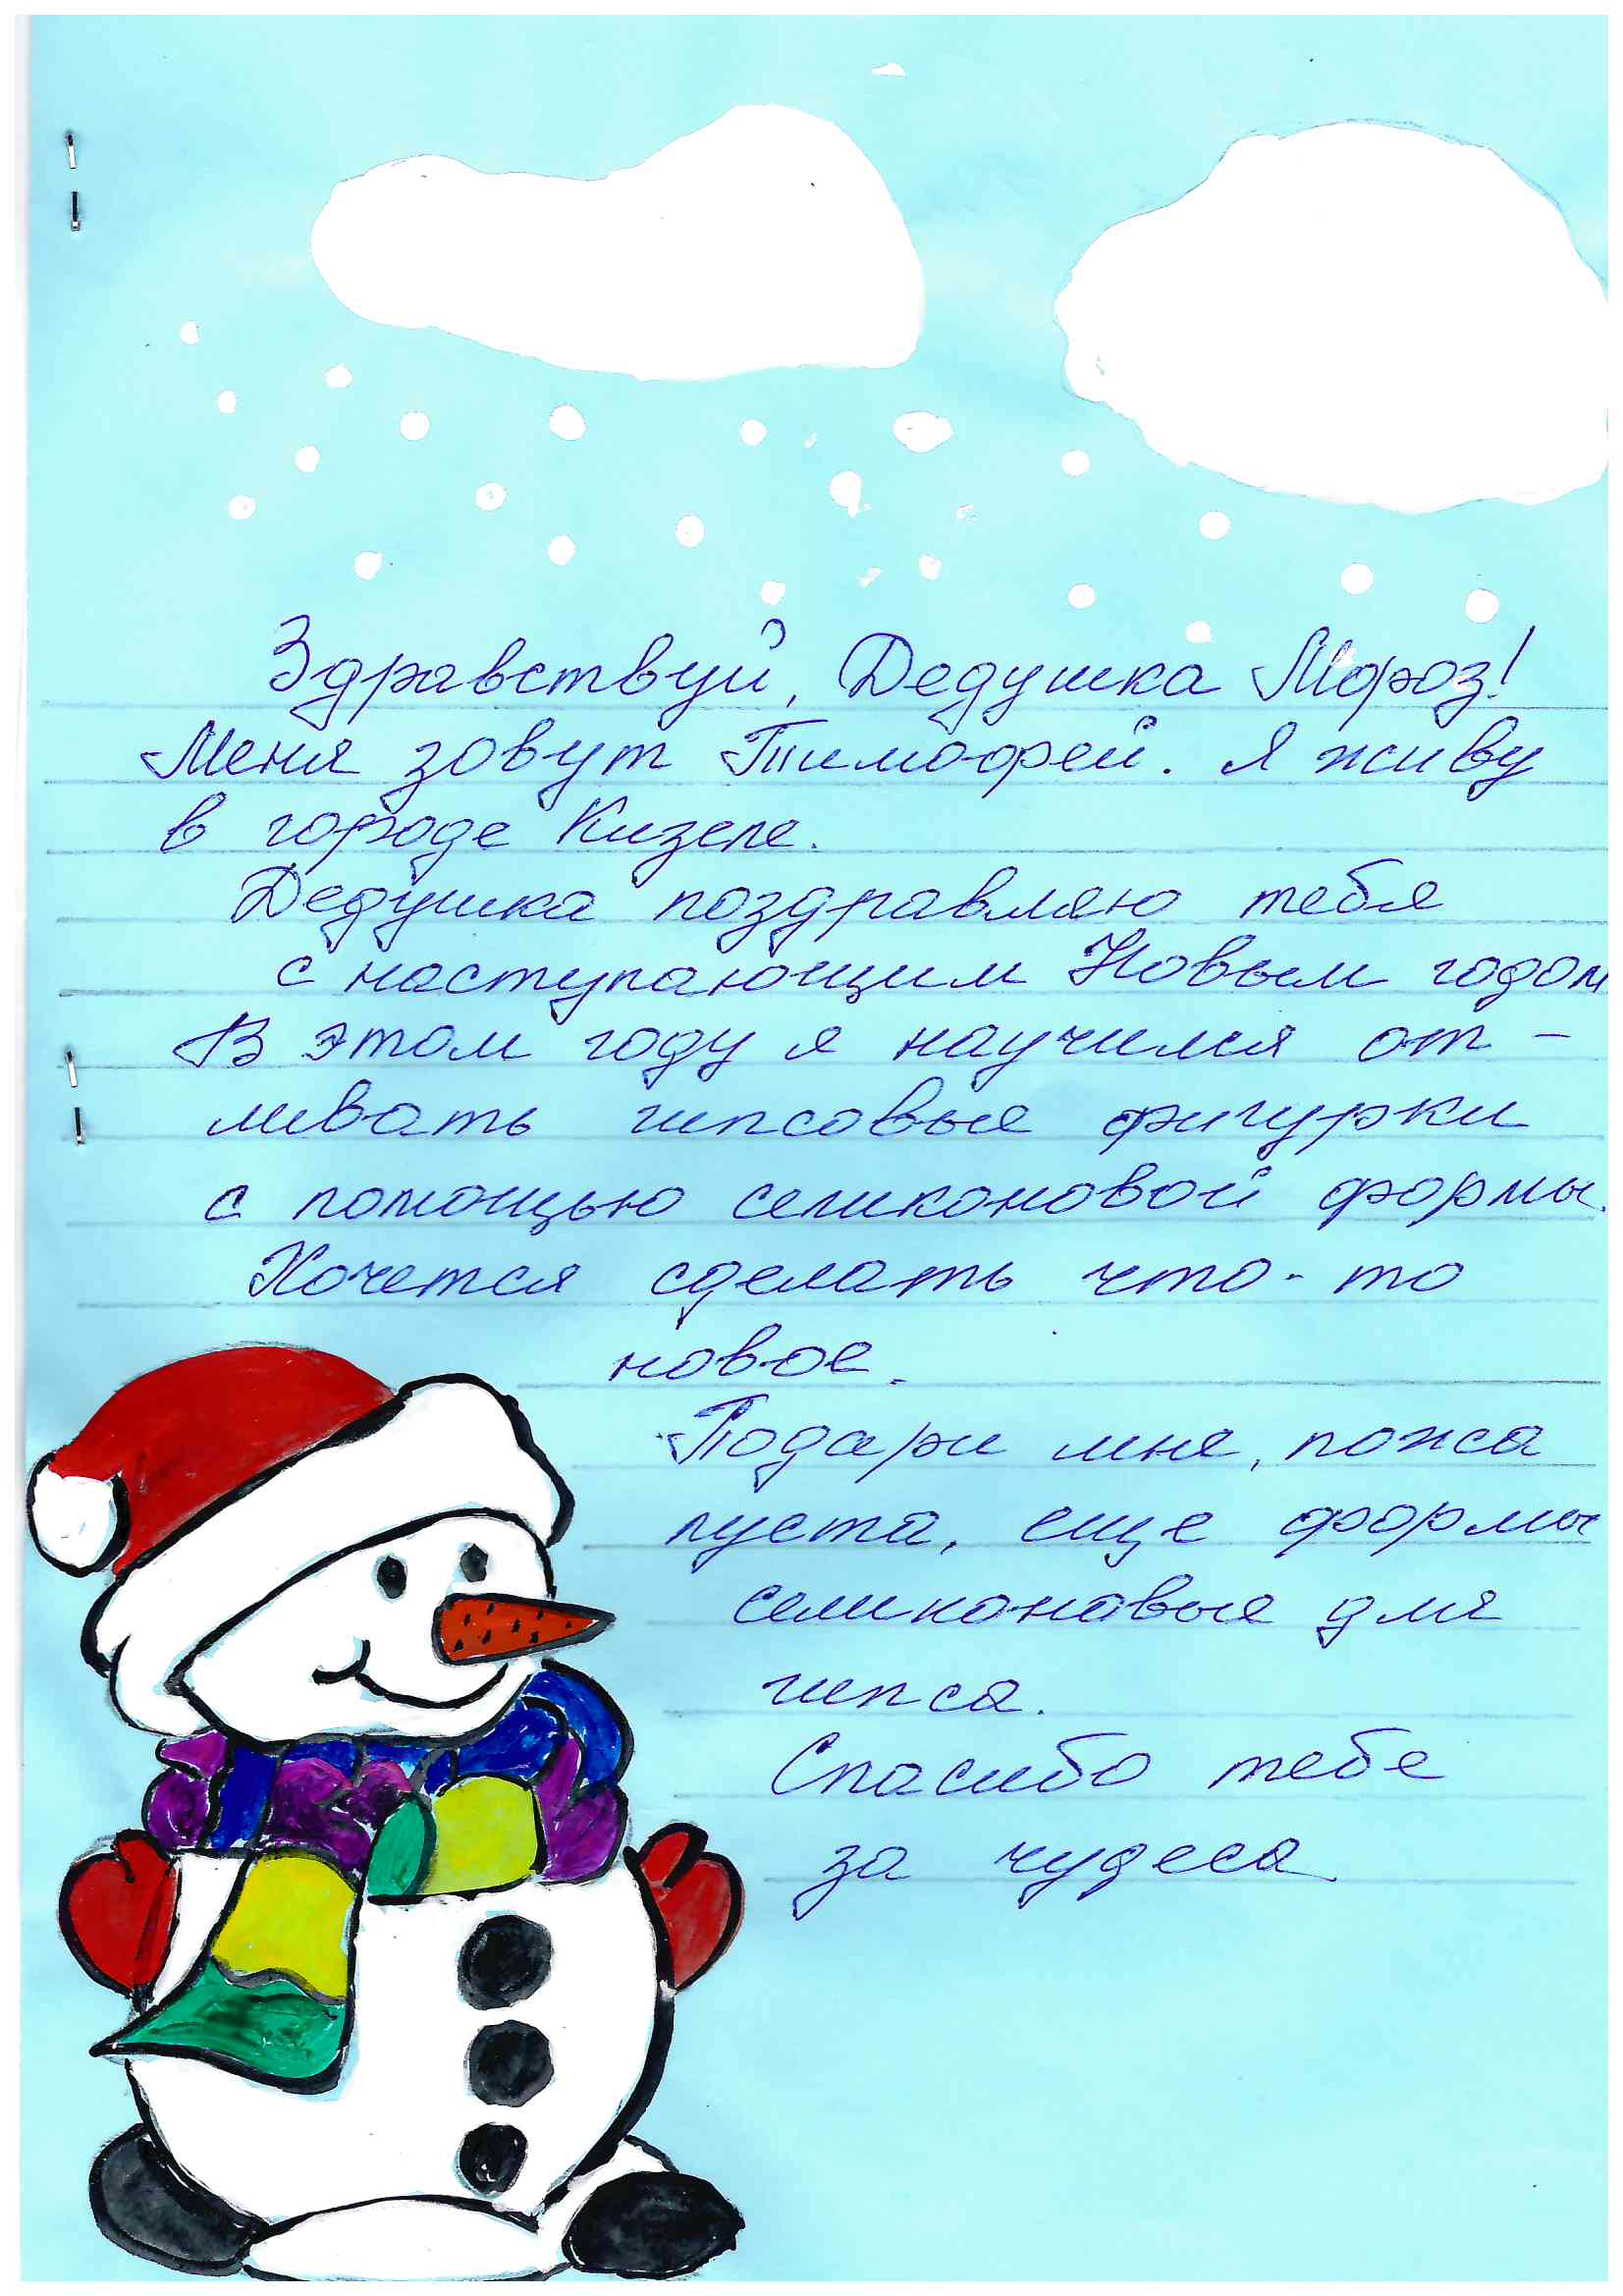 Здравствуй, Дедушка Мороз!
Меня зовут Тимофей. Я живу
в городе Кизеле.
Дедушка поздравляю тебя
с наступающим Новым годом
В этом году я научился от-
ливать гипсовые фигурки
с помощью селиконовой формы.
Хочется сделать что-то
новое.
Подари мне, пожа
луста, еще формы
селиконовые для
гипса.
Спасибо тебе
за чудеса